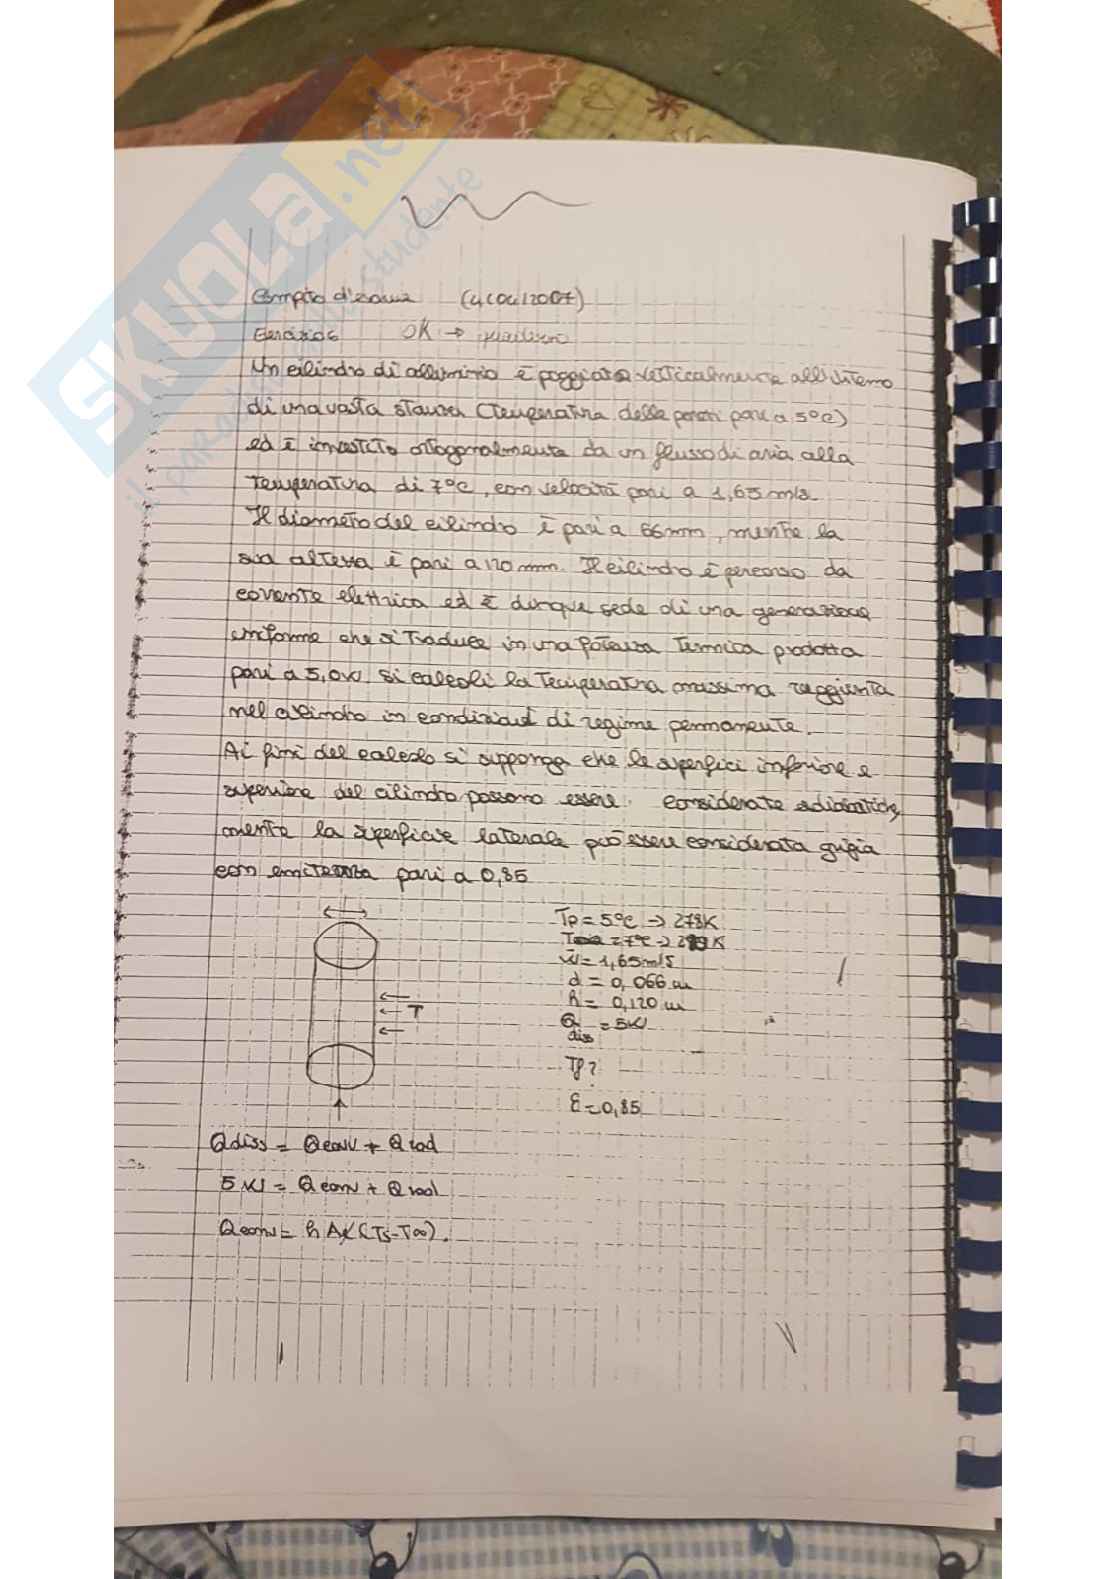 SKUOLA.net
il paradiso dello studente
Compito d'esame (4/04/2007)
Esercizio
OK →
Un cilindro di alluminio è poggiato verticalmente all'interno
di una vasta stanza (temperatura delle pareti pari a 5°C)
ed è investito ortogonalmente da un flusso di aria alla
temperatura di 7°C, con velocità pari a 1,65 m/s.
Il diametro del cilindro è pari a 66mm, mentre la
sua altezza è pari a 120 mm. Il cilindro è percorso da
corrente elettrica ed è dunque sede di una generazione
uniforme che si traduce in una potenza termica prodotta
pari a 5,0W. Si calcoli la temperatura massima raggiunta
nel cilindro in condizioni di regime permanente.
Ai fini del calcolo si supponga che le superfici inferiore e
superiore del cilindro possono essere considerate adiabatiche,
mentre la superficie laterale può essere considerata grigia
con emittenza pari a 0,85
Tp = 5°C → 278K
T∞ = 7°C → K
w = 1,65 m/s
d = 0,066 m
h = 0,120 m
T
Q diss = 5W
Tf?
ε = 0,85
Q diss = Q conv + Q rad
5 W = Q conv + Q rad
Q conv = h A (Ts-T∞).